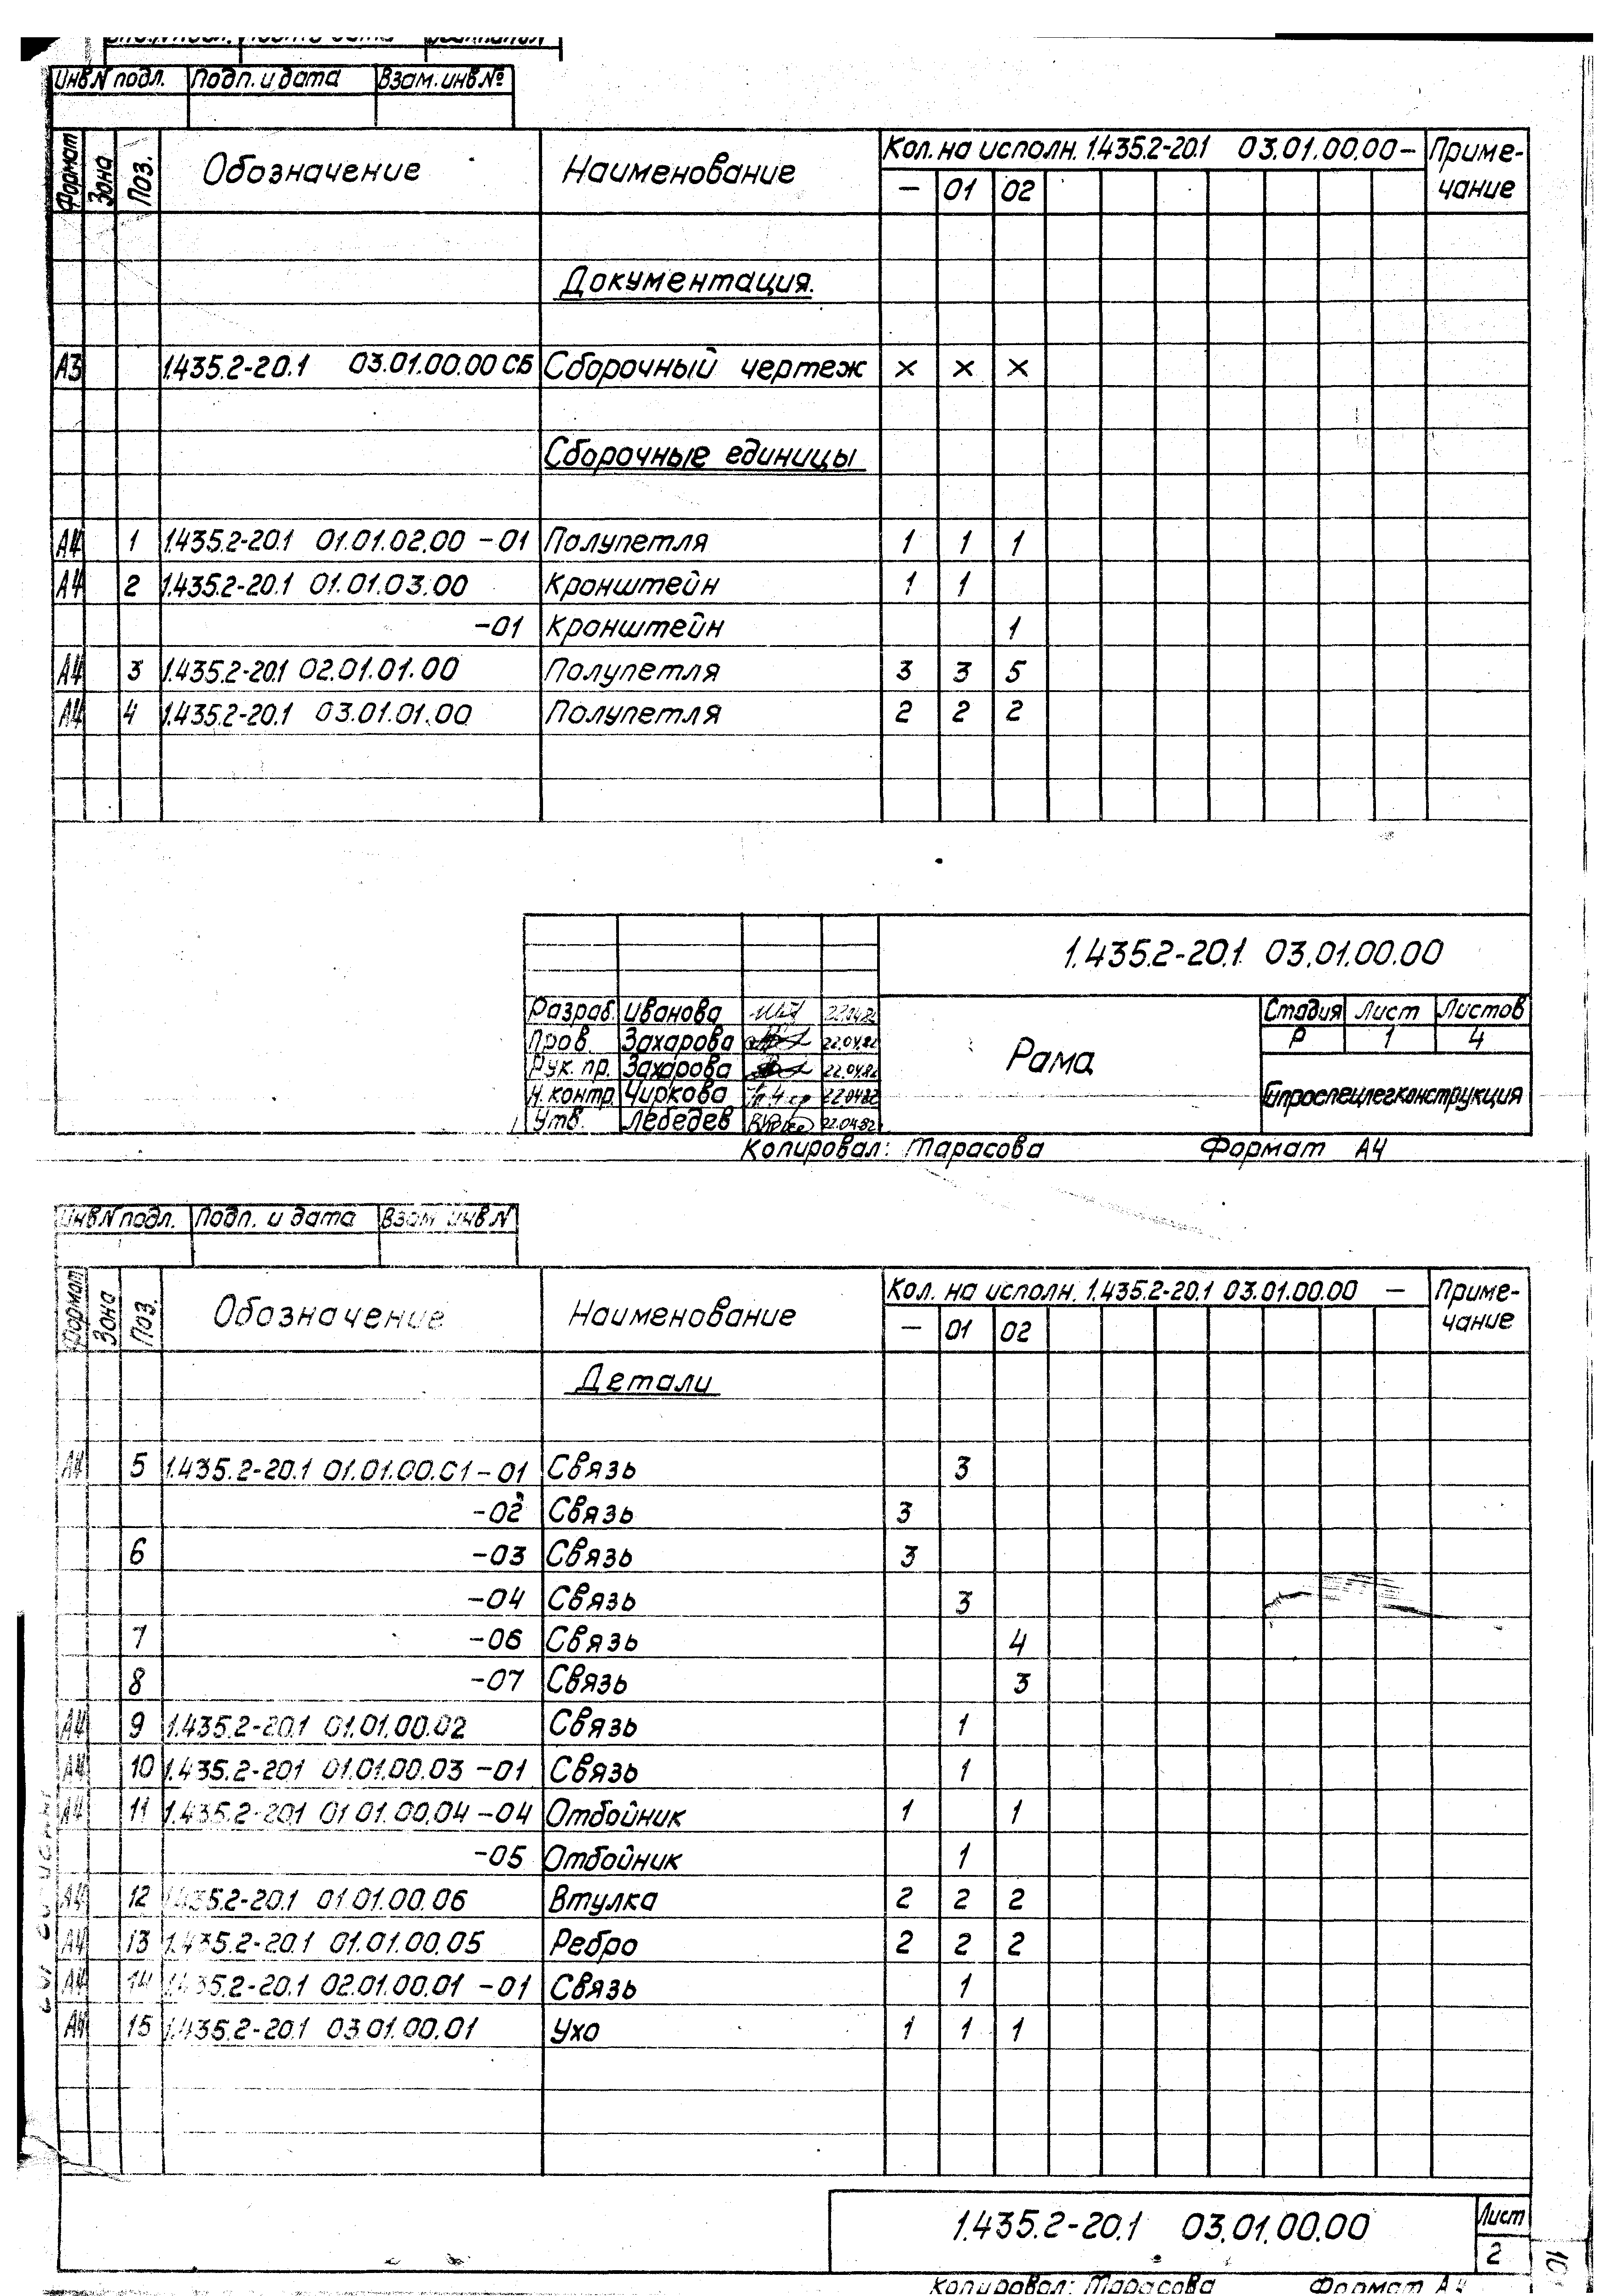 Инв.N подл. Подп. и дата Взам. инв.№
Формат Зона Поз. Обозначение Наименование Кол. на исполн. 1.435.2-20.1 03.01.00.00- Приме-
чание
— 01 02
Документация.
А3 1.435.2-20.1 03.01.00.00 СБ Сборочный чертеж × × ×
Сборочные единицы
А4 1 1.435.2-20.1 01.01.02.00 -01 Полупетля 1 1 1
А4 2 1.435.2-20.1 01.01.03.00 Кронштейн 1 1
-01 Кронштейн 1
А4 3 1.435.2-20.1 02.01.01.00 Полупетля 3 3 5
А4 4 1.435.2-20.1 03.01.01.00 Полупетля 2 2 2
1.435.2-20.1 03.01.00.00
Разраб. Иванова 22.04.82
Пров. Захарова 22.04.82
Рук. пр. Захарова 22.04.82
Н. контр. Чиркова 22.04.82
Утв. Лебедев 22.04.82
Рама
Стадия Лист Листов
Р 1 4
Гипроспецлегконструкция
Копировал: Тарасова Формат А4
Инв.N подл. Подп. и дата Взам. инв.N
Формат Зона Поз. Обозначение Наименование Кол. на исполн. 1.435.2-20.1 03.01.00.00 — Приме-
чание
— 01 02
Детали
А4 5 1.435.2-20.1 01.01.00.01-01 Связь 3
-02 Связь 3
6 -03 Связь 3
-04 Связь 3
7 -06 Связь 4
8 -07 Связь 3
А4 9 1.435.2-20.1 01.01.00.02 Связь 1
А4 10 1.435.2-20.1 01.01.00.03 -01 Связь 1
А4 11 1.435.2-20.1 01.01.00.04 -04 Отбойник 1 1
-05 Отбойник 1
А4 12 1.435.2-20.1 01.01.00.06 Втулка 2 2 2
А4 13 1.435.2-20.1 01.01.00.05 Ребро 2 2 2
А4 14 1.435.2-20.1 02.01.00.01 -01 Связь 1
А4 15 1.435.2-20.1 03.01.00.01 Ухо 1 1 1
1.435.2-20.1 03.01.00.00
Лист
2
Копировал: Тарасова Формат А4
10